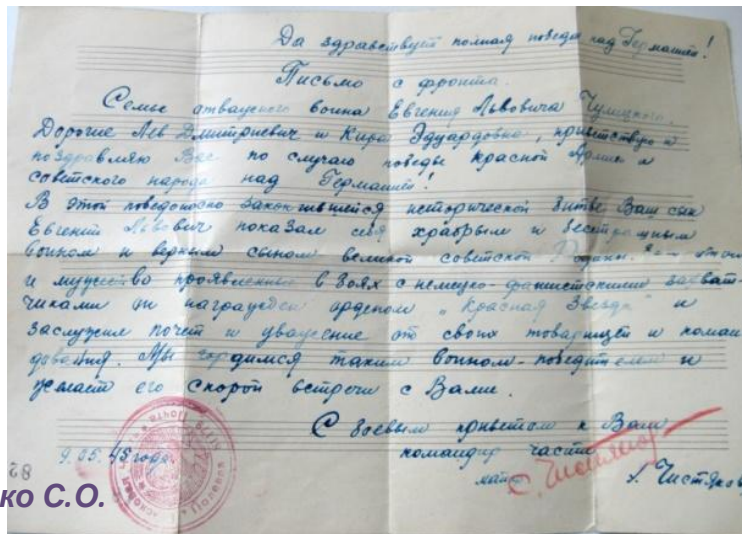 Да здравствует полная победа над Германией!
Письмо с фронта.
Семье отважного воина Евгения Львовича Чулицкого.
Дорогие Лев Дмитриевич и Кира Эдуардовна, приветствую и
поздравляю Вас по случаю победы Красной Армии и
советского народа над Германией!
В этой победоносно закончившейся исторической битве Ваш сын
Евгений Львович показал себя храбрым и бесстрашным
воином и верным сыном великой советской Родины. За
и мужество проявленные в боях с немецко-фашистскими захват-
чиками он награжден орденом „Красная Звезда" и
заслужил почет и уважение от своих товарищей и коман
дования. Мы гордимся таким воином-победителем и
желаем его скорой встречи с Вами.
С боевым приветом к Вам
9.05.45 года. командир части
Чистяков
82
ко С.О.